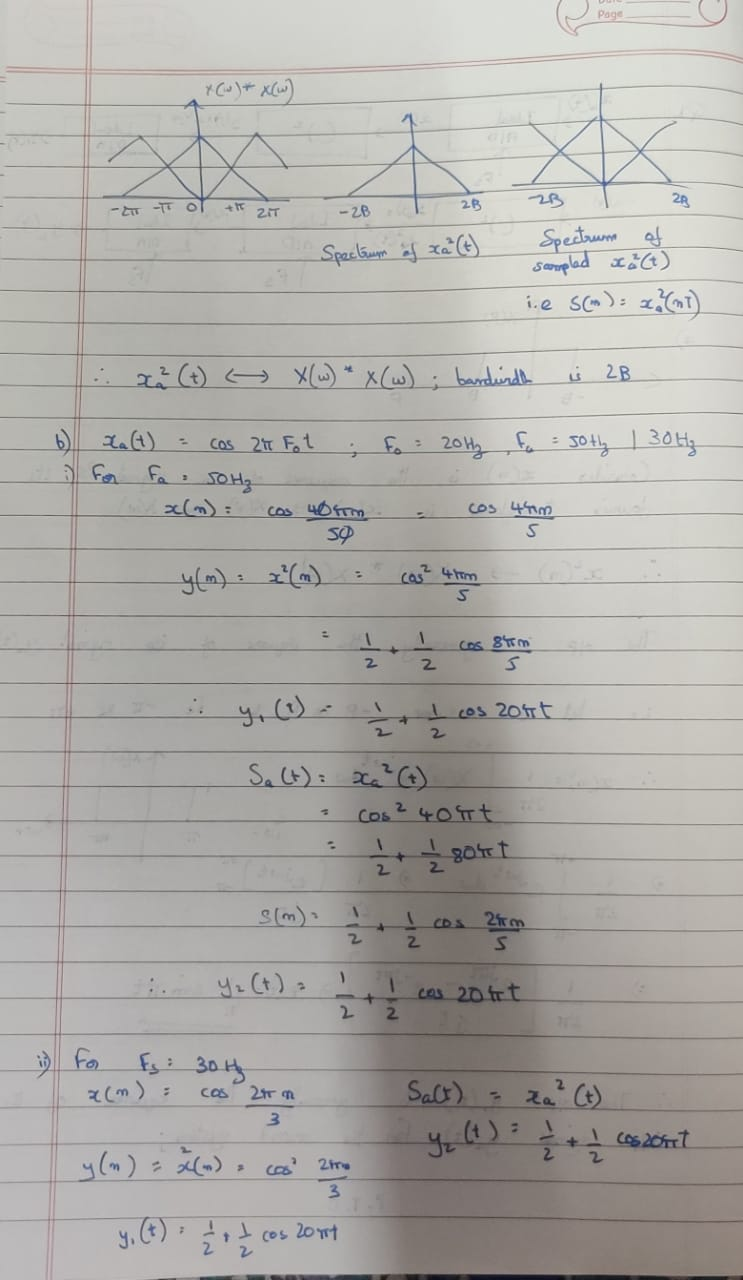 Page
X(ω) * X(ω)
-2π -π 0 +π 2π
-2B 2B
-2B 2B
Spectrum of xa²(t)
Spectrum of
sampled xa²(t)
i.e S(n) = xa²(nT)
∴ xa²(t) ⟷ X(ω) * X(ω) ; bandwidth is 2B
b) xa(t) = cos 2π F₀t ; F₀ = 20Hz, Fs = 50Hz | 30Hz
i) For Fs = 50Hz
x(n) = cos 40πn/50 = cos 4πn/5
y(n) = x²(n) = cos² 4πn/5
= 1/2 + 1/2 cos 8πn/5
∴ y₁(t) = 1/2 + 1/2 cos 20πt
Sa(t) = xa²(t)
= cos² 40πt
= 1/2 + 1/2 80πt
S(n) = 1/2 + 1/2 cos 2πn/5
∴ y₂(t) = 1/2 + 1/2 cos 20πt
ii) For Fs = 30Hz
x(n) = cos 2πn/3
Sa(t) = xa²(t)
y₂(t) = 1/2 + 1/2 cos20πt
y(n) = x²(n) = cos² 2πn/3
y₁(t) = 1/2 + 1/2 cos 20πt